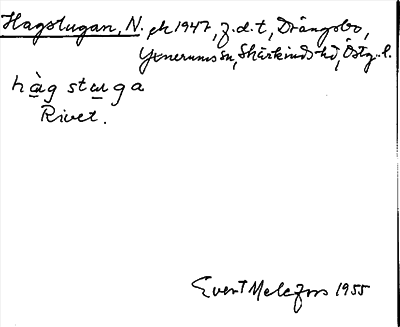 Hagstugan, N. ek 1947, f.d.t, Drängsbo,
Yxnerums sn, Skärkinds hd, Östg. l.
hàg stuga
Rivet.
Evert Melefors 1955